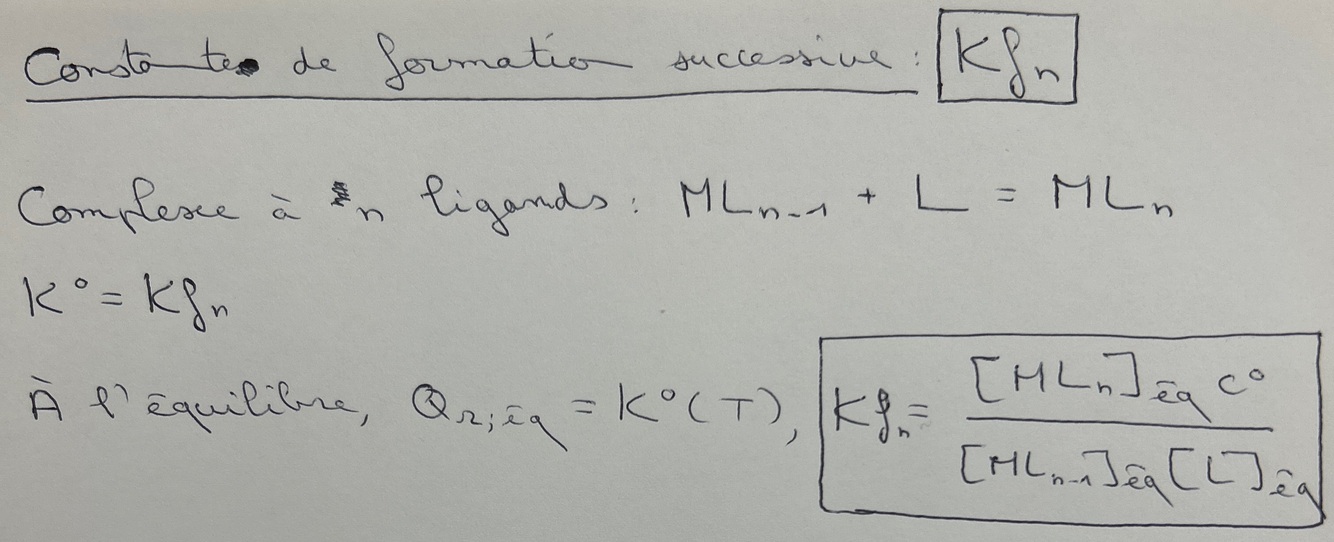 Constante de formation successive : Kfₙ
Complexe à n ligands : MLₙ₋₁ + L = MLₙ
K° = Kfₙ
À l'équilibre, Qr,éq = K°(T), Kfₙ = [MLₙ]éq c° / [MLₙ₋₁]éq [L]éq